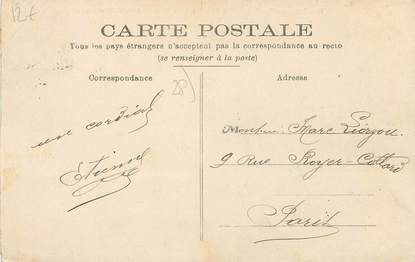 12€
CARTE POSTALE
Tous les pays étrangers n'acceptent pas la correspondance au recto
(se renseigner à la poste)
Correspondance
Adresse
28)
une cordial
Étienne
Monsieur Marc Liozon.
9 Rue Royer-Collard
Paris